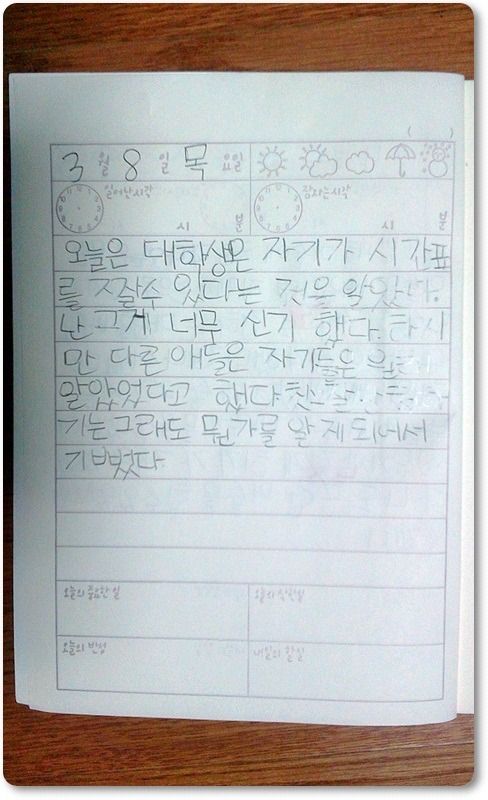 ( )
3 월 8 일 목 요일
일어난시각 잠자는시각
시 분 시 분
오늘은 대학생은 자기가 시간표
를 짤수 있다는 것을 알았다.
난 그게 너무 신기 했다. 하지
만 다른 애들은 자기들은 원래
알았었다고 했다.
기는 그래도 뭔가를 알 게 되어서
기뻤다.
오늘의 중요한 일 오늘의 착한일
오늘의 반성 내일의 할일